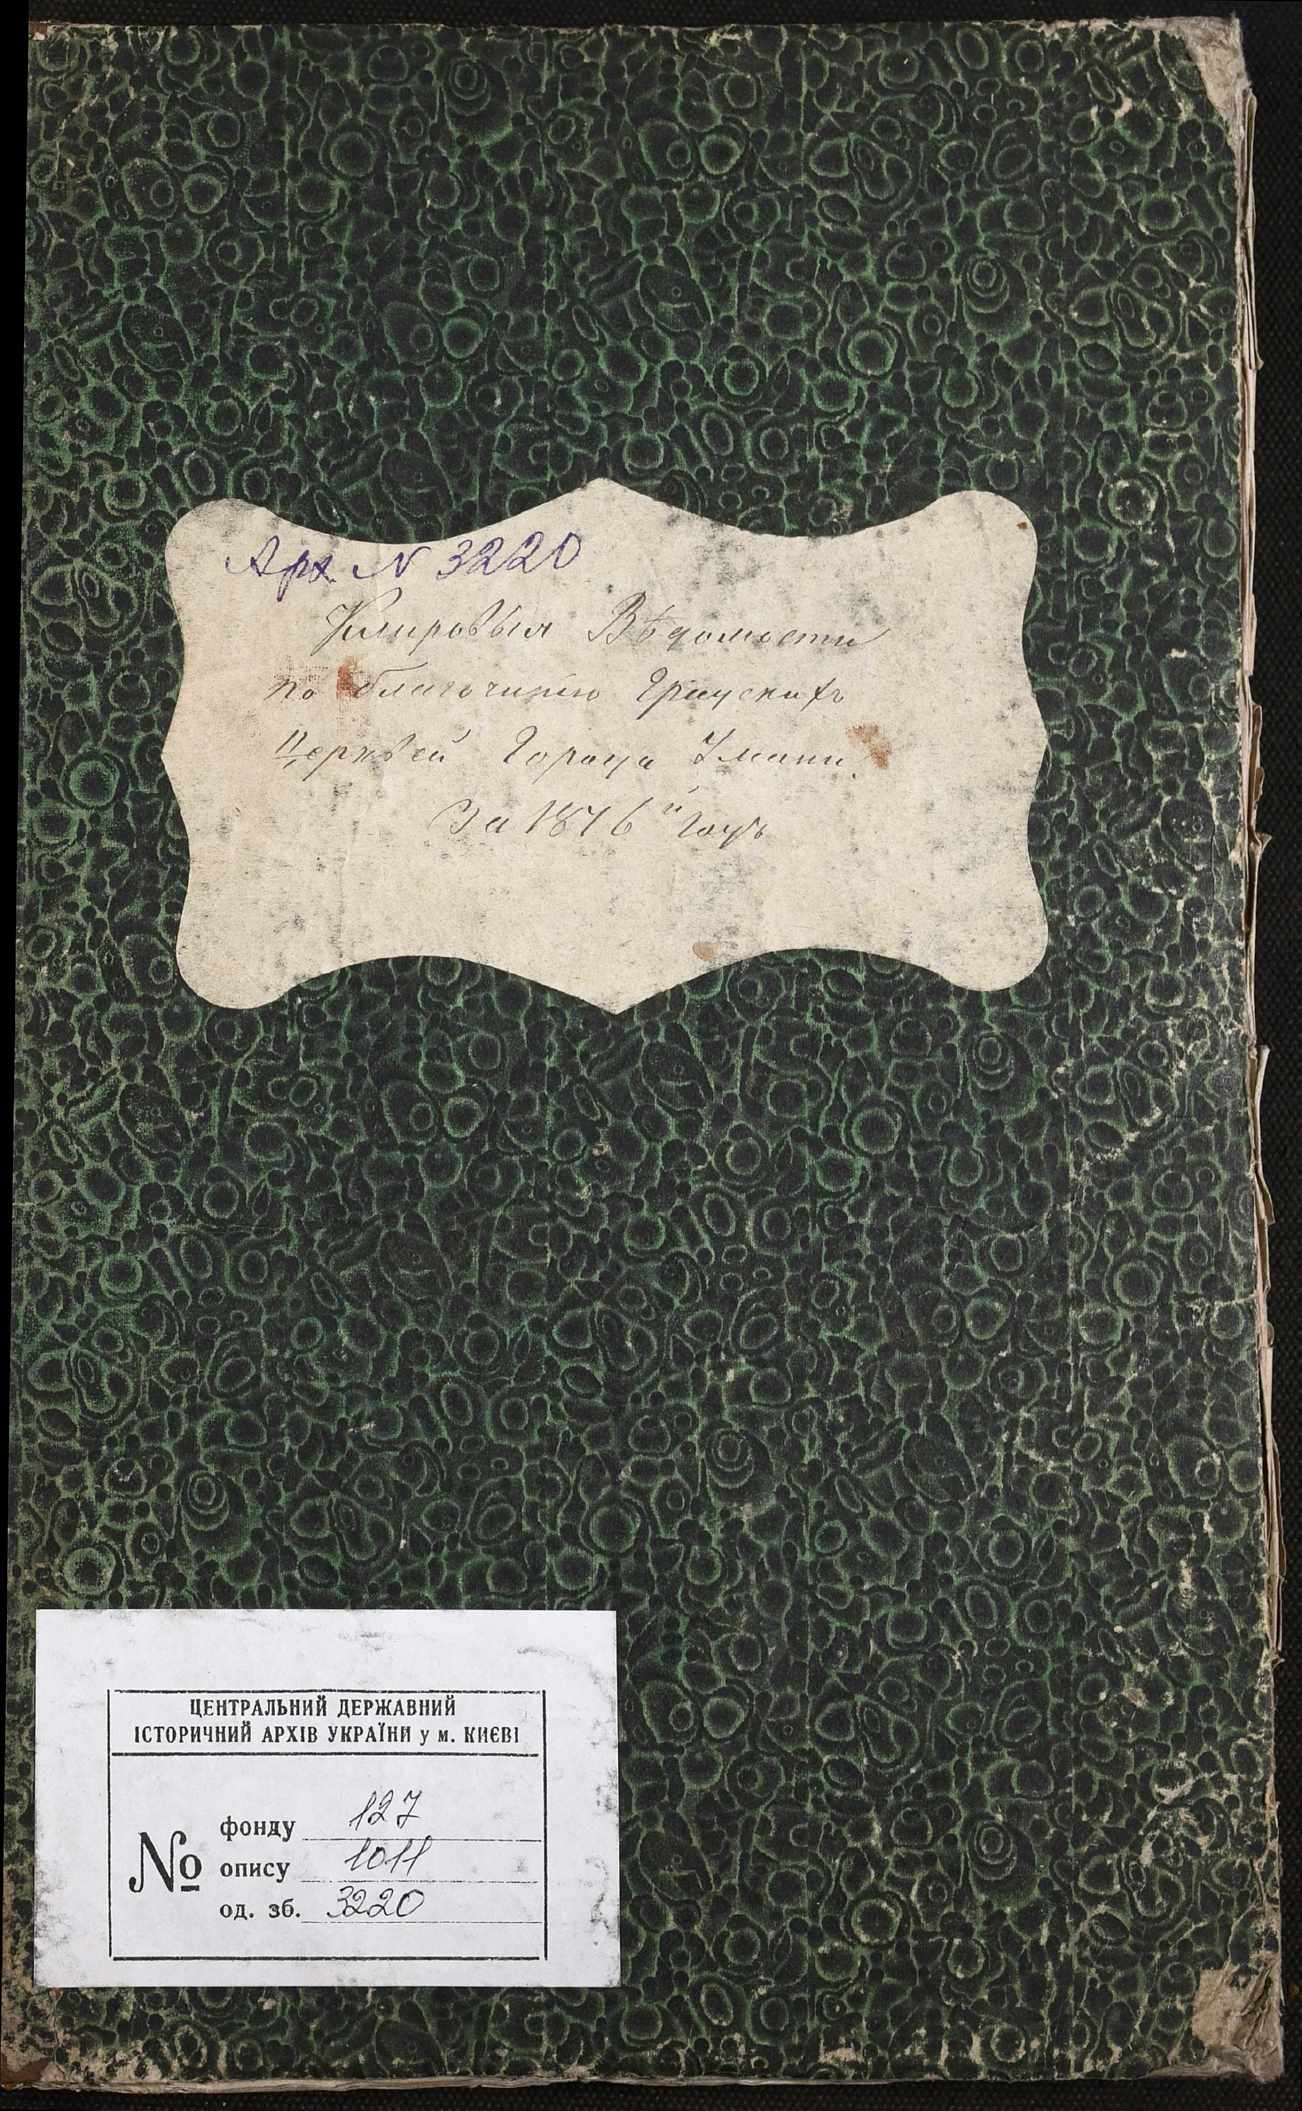 Арх. № 3220
Клировыя Вѣдомости
по благочинію Градскихъ
Церквей Города Умани.
За 1876 й Годъ
ЦЕНТРАЛЬНИЙ ДЕРЖАВНИЙ
ІСТОРИЧНИЙ АРХІВ УКРАЇНИ у м. КИЄВІ
№
фонду 127
опису 1011
од. зб. 3220